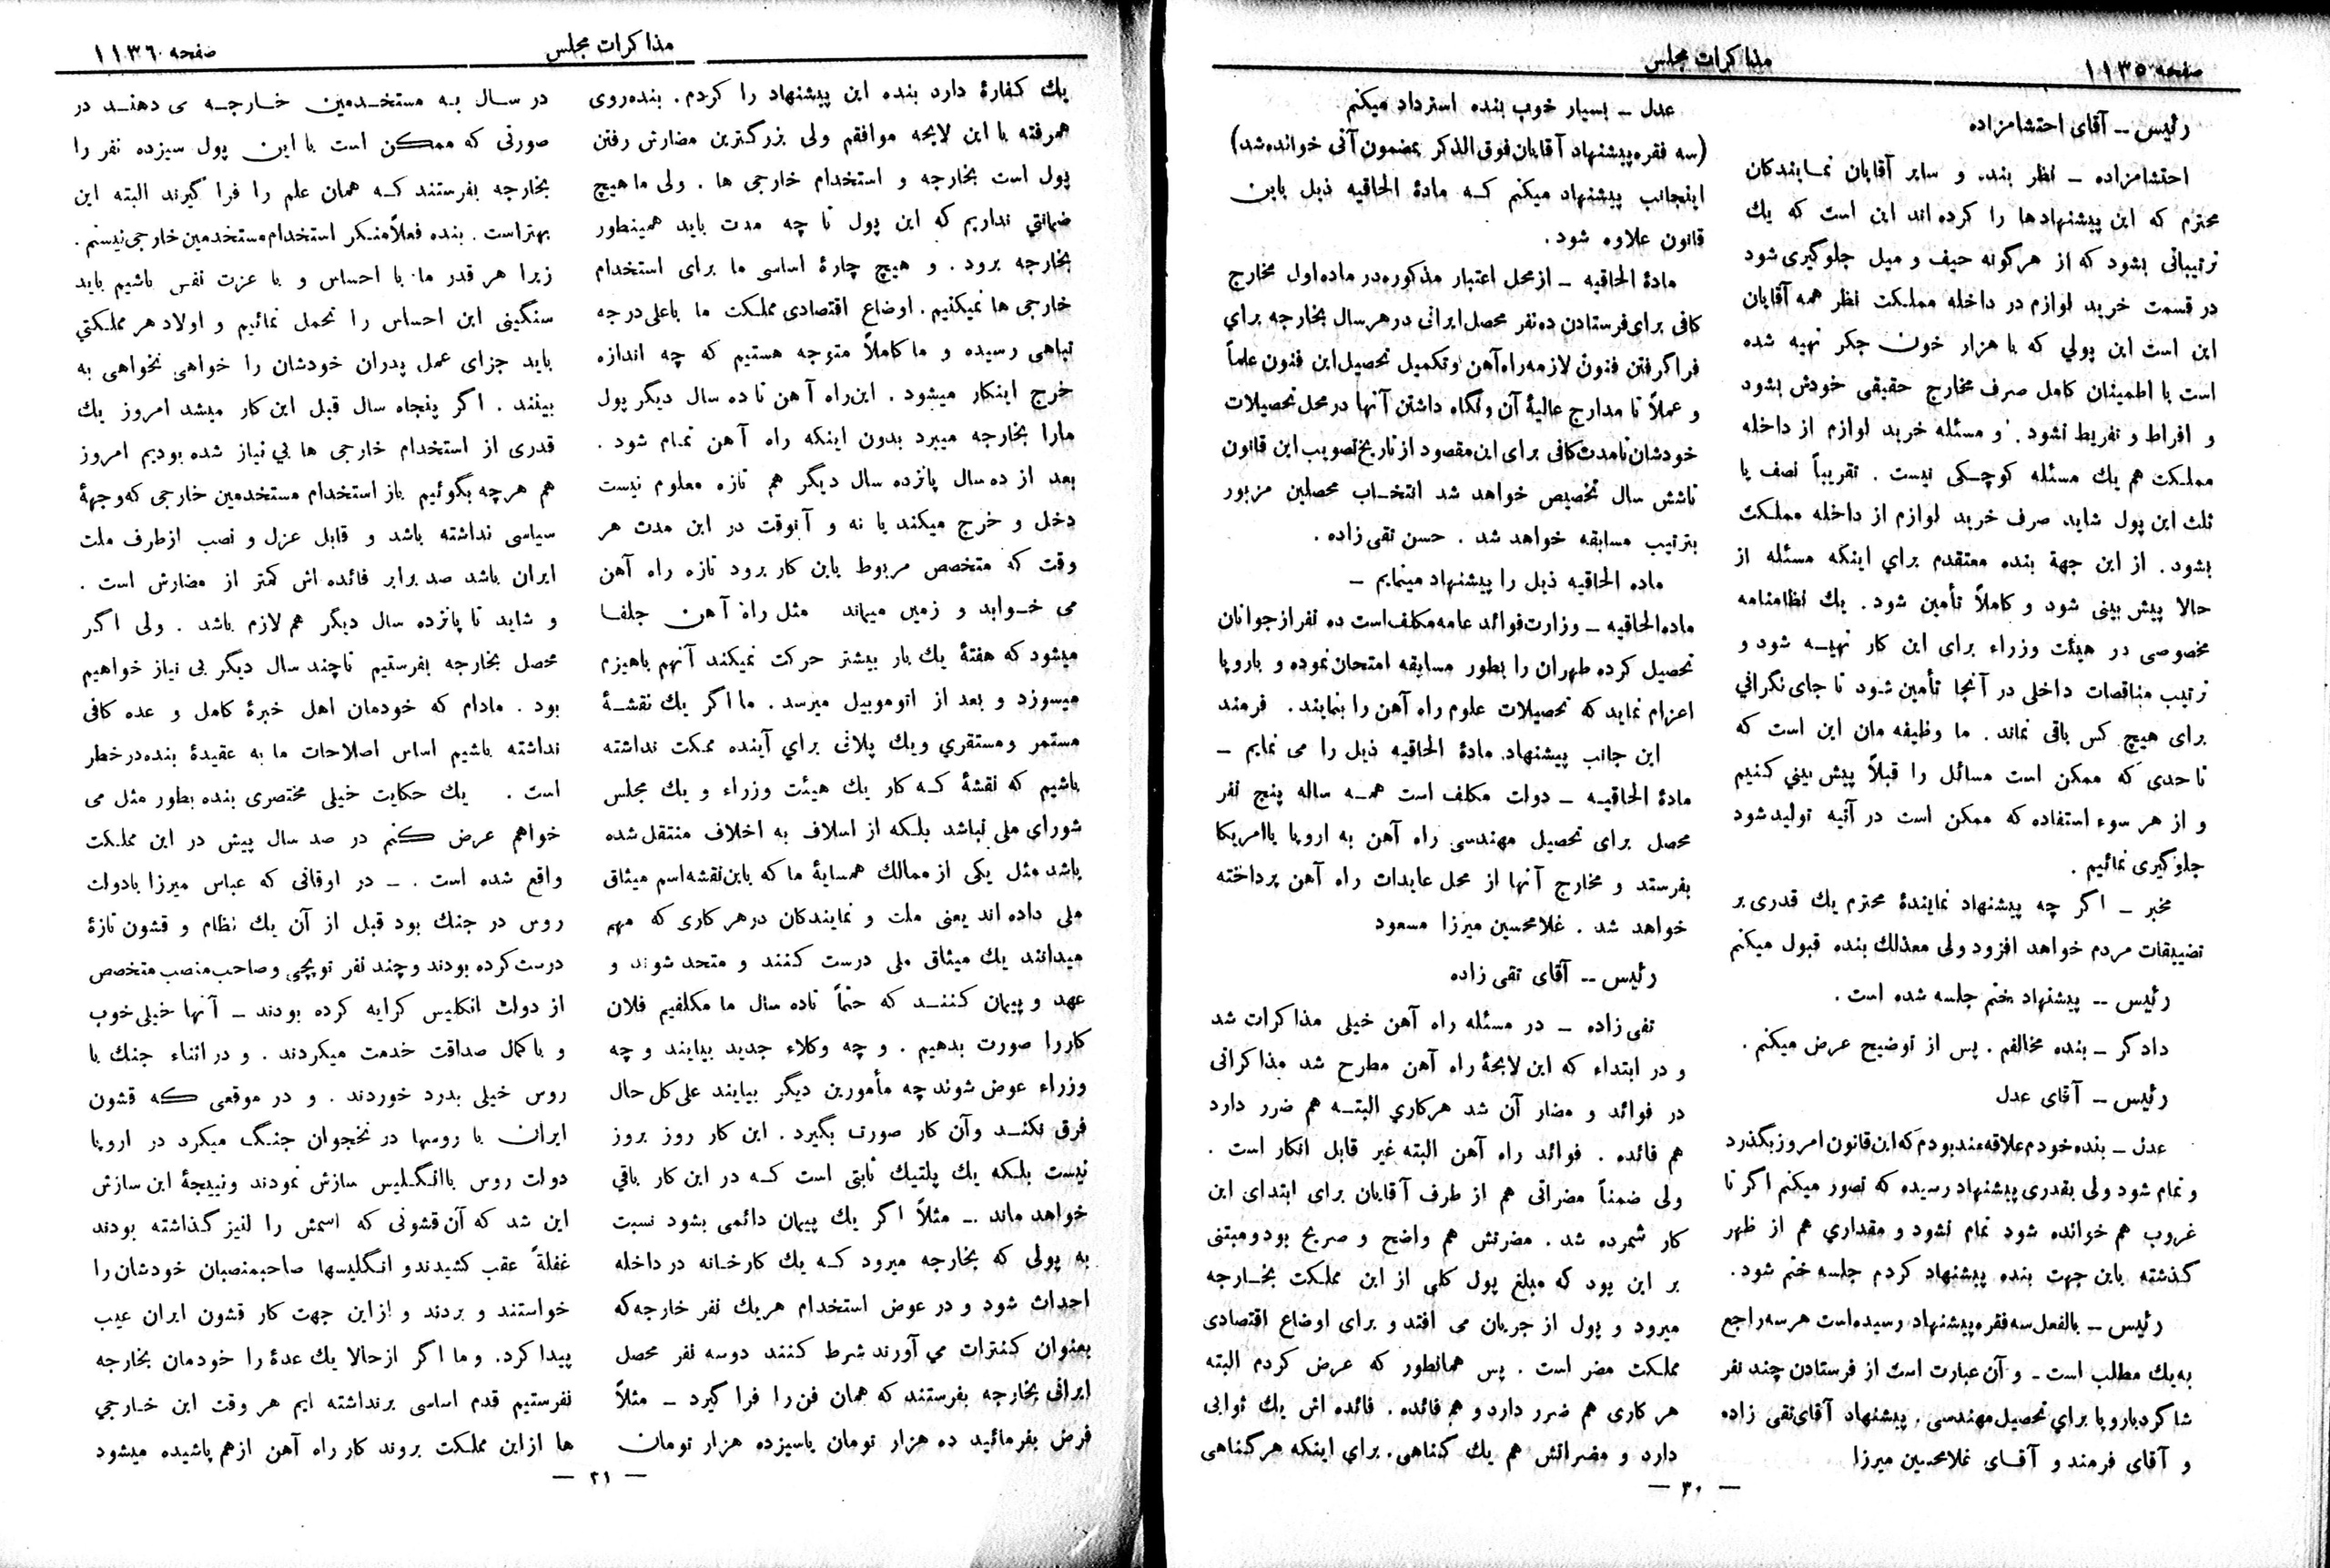 صفحه ۱۱۳۵
مذاکرات مجلس
رئیس ــ آقای احتشامزاده
احتشامزاده ــ نظر بنده و سایر آقایان نمایندگان
محترم که این پیشنهادها را کرده اند این است که یك
ترتیباتی بشود که از هرگونه حیف و میل جلوگیری شود
در قسمت خرید لوازم در داخله مملکت نظر همه آقایان
این است این پولی که با هزار خون جگر تهیه شده
است با اطمینان کامل صرف مخارج حقیقی خودش بشود
و افراط و تفریط نشود. و مسئله خرید لوازم از داخله
مملکت هم یك مسئله کوچکی نیست . تقریباً نصف یا
ثلث این پول شاید صرف خرید لوازم از داخله مملکت
بشود. از این جهة بنده معتقدم برای اینکه مسئله از
حالا پیش بینی شود و کاملاً تأمین شود. یك نظامنامه
مخصوصی در هیئت وزراء برای این کار تهیه شود و
ترتیب مناقصات داخلی در آنجا تأمین شود تا جای نگرانی
برای هیچ کس باقی نماند. ما وظیفه مان این است که
تا حدی که ممکن است مسائل را قبلاً پیش بینی کنیم
و از هر سوء استفاده که ممکن است در آتیه تولید شود
جلوگیری نمائیم .
مخبر ــ اگر چه پیشنهاد نمایندهٔ محترم یك قدری بر
تضییقات مردم خواهد افزود ولی معذلك بنده قبول میکنم
رئیس ــ پیشنهاد ختم جلسه شده است .
دادگر ــ بنده مخالفم . پس از توضیح عرض میکنم .
رئیس ــ آقای عدل
عدل ــ بنده خودم علاقه مند بودم که این قانون امروز بگذرد
و تمام شود ولی بقدری پیشنهاد رسیده که تصور میکنم اگر تا
غروب هم خوانده شود تمام نشود و مقداری هم از ظهر
گذشته باین جهت بنده پیشنهاد کردم جلسه ختم شود.
رئیس ــ بالفعل سه فقره پیشنهاد رسیده است هر سه راجع
به یك مطلب است ــ و آن عبارت است از فرستادن چند نفر
شاگرد باروپا برای تحصیل مهندسی. پیشنهاد آقای تقی زاده
و آقای فرمند و آقای غلامحسین میرزا
عدل ــ بسیار خوب بنده استرداد میکنم
(سه فقره پیشنهاد آقایان فوق الذکر بمضمون آتی خوانده شد)
اینجانب پیشنهاد میکنم که مادهٔ الحاقیه ذیل باین
قانون علاوه شود.
مادهٔ الحاقیه ــ از محل اعتبار مذکوره در ماده اول مخارج
کافی برای فرستادن ده نفر محصل ایرانی در هر سال بخارجه برای
فراگرفتن فنون لازمه راه آهن و تکمیل تحصیل این فنون علماً
و عملاً تا مدارج عالیهٔ آن و نگاه داشتن آنها در محل تحصیلات
خودشان تا مدت کافی برای این مقصود از تاریخ تصویب این قانون
تا شش سال تخصیص خواهد شد انتخاب محصلین مزبور
بترتیب مسابقه خواهد شد . حسن تقی زاده .
ماده الحاقیه ذیل را پیشنهاد مینمایم ــ
ماده الحاقیه ــ وزارت فوائد عامه مکلف است ده نفر از جوانان
تحصیل کرده طهران را بطور مسابقه امتحان نموده و باروپا
اعزام نماید که تحصیلات علوم راه آهن را بنمایند. فرمند
این جانب پیشنهاد مادهٔ الحاقیه ذیل را می نمایم ــ
مادهٔ الحاقیه ــ دولت مکلف است همه ساله پنج نفر
محصل برای تحصیل مهندسی راه آهن به اروپا یا امریکا
بفرستد و مخارج آنها از محل عایدات راه آهن پرداخته
خواهد شد . غلامحسین میرزا مسعود
رئیس ــ آقای تقی زاده
تقی زاده ــ در مسئله راه آهن خیلی مذاکرات شد
و در ابتداء که این لایحهٔ راه آهن مطرح شد مذاکراتی
در فوائد و مضار آن شد هرکاری البته هم ضرر دارد
هم فائده . فوائد راه آهن البته غیر قابل انکار است .
ولی ضمناً مضراتی هم از طرف آقایان برای ابتدای این
کار شمرده شد . مضرتش هم واضح و صریح بود و مبتنی
بر این بود که مبلغ پول کلی از این مملکت بخارجه
میرود و پول از جریان می افتد و برای اوضاع اقتصادی
مملکت مضر است . پس همانطور که عرض کردم البته
هر کاری هم ضرر دارد و هم فائده. فائده اش یك ثوابی
دارد و مضراتش هم یك گناهی. برای اینکه هر گناهی
ــ ۳۰ ــ
مذاکرات مجلس
صفحه ۱۱۳۶
یك کفارهٔ دارد بنده این پیشنهاد را کردم. بنده روی
همرفته با این لایحه موافقم ولی بزرگترین مضارش رفتن
پول است بخارجه و استخدام خارجی ها . ولی ما هیچ
ضمانتی نداریم که این پول تا چه مدت باید همینطور
بخارجه برود . و هیچ چارهٔ اساسی ما برای استخدام
خارجی ها نمیکنیم. اوضاع اقتصادی مملکت ما باعلی درجه
تباهی رسیده و ما کاملاً متوجه هستیم که چه اندازه
خرج اینکار میشود . این راه آهن تا ده سال دیگر پول
مارا بخارجه میبرد بدون اینکه راه آهن تمام شود .
بعد از ده سال پانزده سال دیگر هم تازه معلوم نیست
دخل و خرج میکند یا نه و آنوقت در این مدت هر
وقت که متخصص مربوط باین کار برود تازه راه آهن
می خوابد و زمین میماند مثل راه آهن جلفا
میشود که هفتهٔ یك بار بیشتر حرکت نمیکند آنهم باهیزم
میسوزد و بعد از اتوموبیل میرسد. ما اگر یك نقشهٔ
مستمر و مستقری و یك پلان برای آینده مملکت نداشته
باشیم که نقشهٔ که کار یك هیئت وزراء و یك مجلس
شورای ملی نباشد بلکه از اسلاف به اخلاف منتقل شده
باشد مثل یکی از ممالك همسایهٔ ما که باین نقشه اسم میثاق
ملی داده اند یعنی ملت و نمایندگان در هر کاری که مهم
میدانند یك میثاق ملی درست کنند و متحد شوند و
عهد و پیمان کنند که حتماً تا ده سال ما مکلفیم فلان
کار را صورت بدهیم . و چه وکلاء جدید بیایند و چه
وزراء عوض شوند چه مأمورین دیگر بیایند علی کل حال
فرق نکند و آن کار صورت بگیرد. این کار روز بروز
نیست بلکه یك پلتیك ثابتی است که در این کار باقی
خواهد ماند ــ مثلاً اگر یك پیمان دائمی بشود نسبت
به پولی که بخارجه میرود که یك کارخانه در داخله
احداث شود و در عوض استخدام هر یك نفر خارجه که
بعنوان کنترات می آورند شرط کنند دو سه نفر محصل
ایرانی بخارجه بفرستند که همان فن را فرا گیرد ــ مثلاً
فرض بفرمائید ده هزار تومان یا سیزده هزار تومان
در سال به مستخدمین خارجه می دهند در
صورتی که ممکن است با این پول سیزده نفر را
بخارجه بفرستند که همان علم را فرا گیرند البته این
بهتر است . بنده فعلاً منکر استخدام مستخدمین خارجی نیستم.
زیرا هر قدر ما با احساس و با عزت نفس باشیم باید
سنگینی این احساس را تحمل نمائیم و اولاد هر مملکتی
باید جزای عمل پدران خودشان را خواهی نخواهی به
بینند . اگر پنجاه سال قبل این کار میشد امروز یك
قدری از استخدام خارجی ها بی نیاز شده بودیم امروز
هم هر چه بگوئیم باز استخدام مستخدمین خارجی که وجههٔ
سیاسی نداشته باشد و قابل عزل و نصب از طرف ملت
ایران باشد صد برابر فائده اش کمتر از مضارش است .
و شاید تا پانزده سال دیگر هم لازم باشد . ولی اگر
محصل بخارجه بفرستیم تا چند سال دیگر بی نیاز خواهیم
بود . مادام که خودمان اهل خبرهٔ کامل و عده کافی
نداشته باشیم اساس اصلاحات ما به عقیدهٔ بنده در خطر
است . یك حکایت خیلی مختصری بنده بطور مثل می
خواهم عرض کنم در صد سال پیش در این مملکت
واقع شده است . ــ در اوقاتی که عباس میرزا با دولت
روس در جنك بود قبل از آن یك نظام و قشون تازهٔ
درست کرده بودند و چند نفر توپچی و صاحب منصب متخصص
از دولت انگلیس کرایه کرده بودند ــ آنها خیلی خوب
و با کمال صداقت خدمت میکردند . و در اثناء جنك با
روس خیلی بدرد خوردند . و در موقعی که قشون
ایران با روسها در نخجوان جنگ میکرد در اروپا
دولت روس با انگلیس سازش نمودند و نتیجهٔ این سازش
این شد که آن قشونی که اسمش را لنیز گذاشته بودند
غفلةً عقب کشیدند و انگلیسها صاحبمنصبان خودشان را
خواستند و بردند و از این جهت کار قشون ایران عیب
پیدا کرد. و ما اگر از حالا یك عدهٔ را خودمان بخارجه
نفرستیم قدم اساسی برنداشته ایم هر وقت این خارجی
ها از این مملکت بروند کار راه آهن از هم پاشیده میشود
ــ ۳۱ ــ